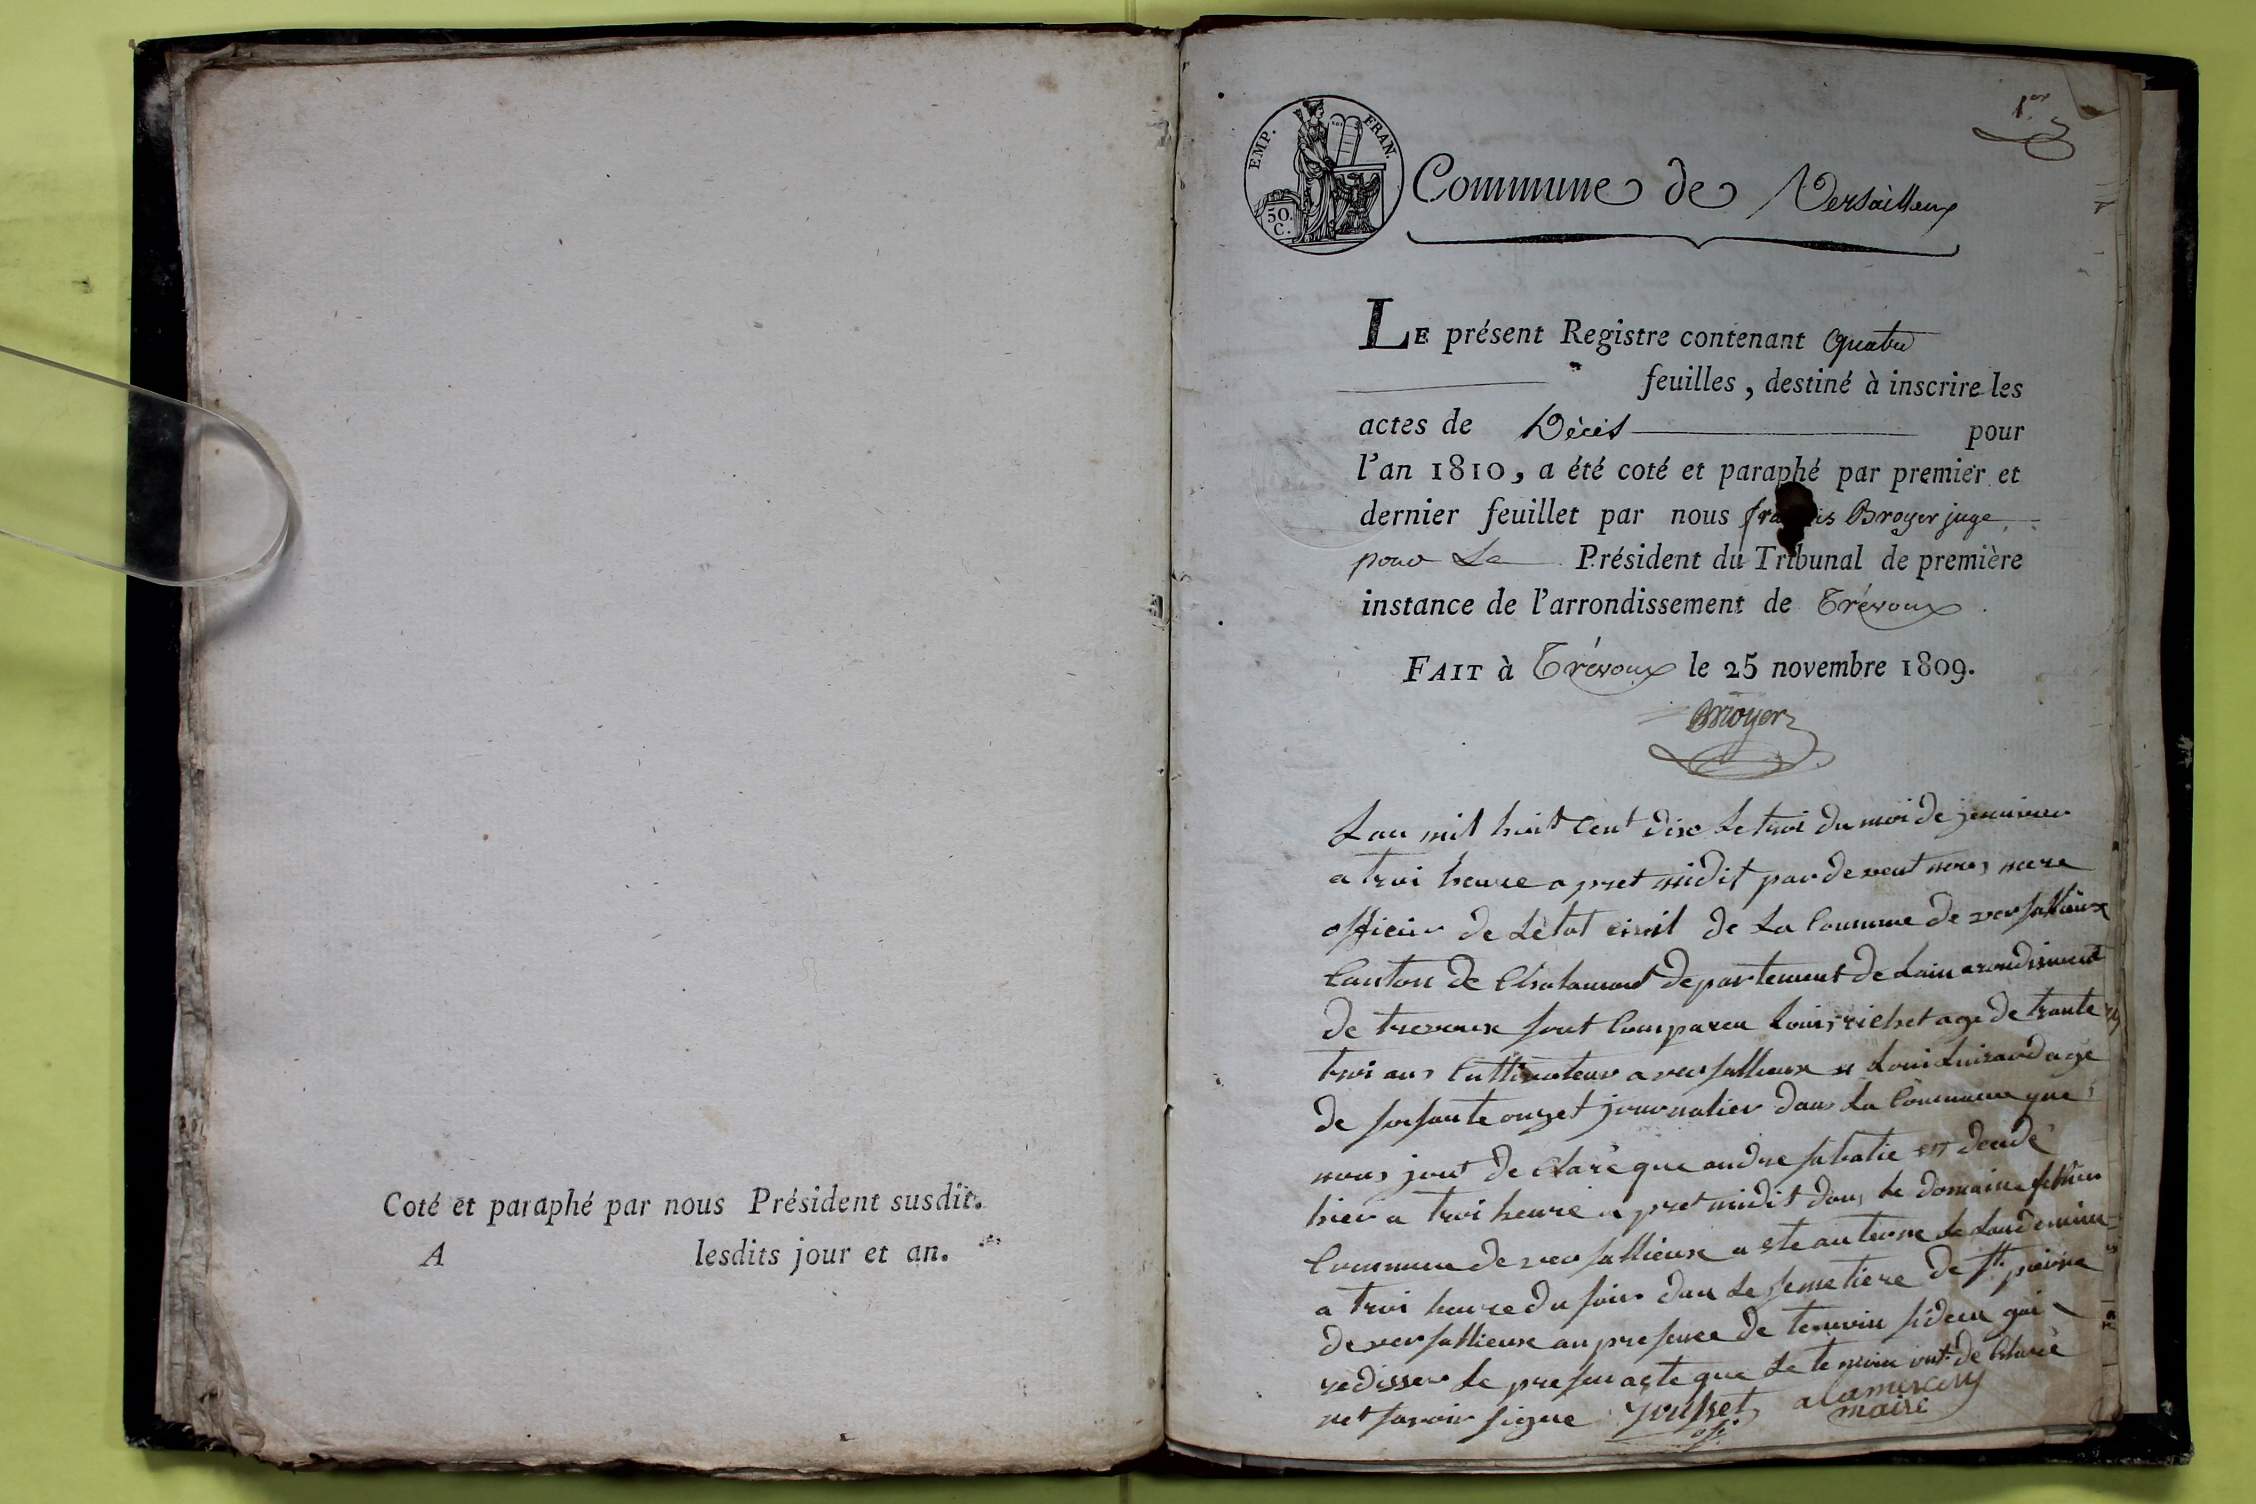 Coté et paraphé par nous Président susdit.
A lesdits jour et an.
1.er
EMP. FRAN.
50.
C.
Commune de Versailleux
LE présent Registre contenant quatre
feuilles, destiné à inscrire les
actes de Décès pour
l'an 1810, a été coté et paraphé par premier et
dernier feuillet par nous Broyer juge
pour Le Président du Tribunal de première
instance de l'arrondissement de Trévoux
FAIT à Trévoux le 25 novembre 1809.
Broyer
Lan mil huit cent dix le troi du moi de
a troi heure apret midit par devent nous mere
officier de Letat civil de La Commune de versallieux
Canton de Chalamont departement de Lain arondisment
de trevoux sont Comparu Louis richet age de trante
troi ans Cultivateur a versallieux et Loui Luisard age
de soisante onze journalier dans La Commune que
nous jont de claré que andre sabatie est
hier a troi heure apret midit dans le domaine
Commune de versallieux a ete anterre Le Landemin
a troi heure du soir dan Le semetiere de st pierre
de versallieux an presence de temoin qui
redisser Le presen acte que Le temoin ont de Claré
net savoir signe
maire